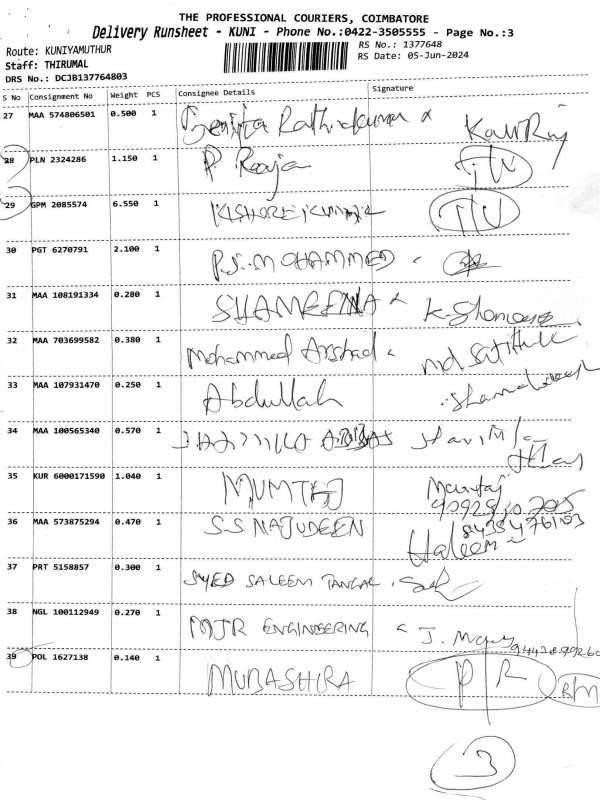 THE PROFESSIONAL COURIERS, COIMBATORE
Delivery Runsheet - KUNI - Phone No.:0422-3505555 - Page No.:3
Route: KUNIYAMUTHUR
RS No.: 1377648
Staff: THIRUMAL
RS Date: 05-Jun-2024
DRS No.: DCJB137764803
S No Consignment No Weight PCS Consignee Details Signature
27 MAA 574806501 0.500 1
28 PLN 2324286 1.150 1 P. Raaja
29 GPM 2085574 6.550 1 KISHORE KUMAR
30 PGT 6270791 2.100 1 P.S. MOHAMMED
31 MAA 108191334 0.280 1 SHAMEENA
32 MAA 703699582 0.380 1 Mohammed Arshad
33 MAA 107931470 0.250 1 Abdullah
34 MAA 100565340 0.570 1 ABBAS
35 KUR 6000171590 1.040 1 MUMTAJ Mumtaj
36 MAA 573875294 0.470 1 S.S NAJUDEEN Haleem
37 PRT 5158857 0.300 1 SYED SALEEM TANGAL
38 NGL 100112949 0.270 1 MJR ENGINEERING
39 POL 1627138 0.140 1 MUBASHIRA P R
3